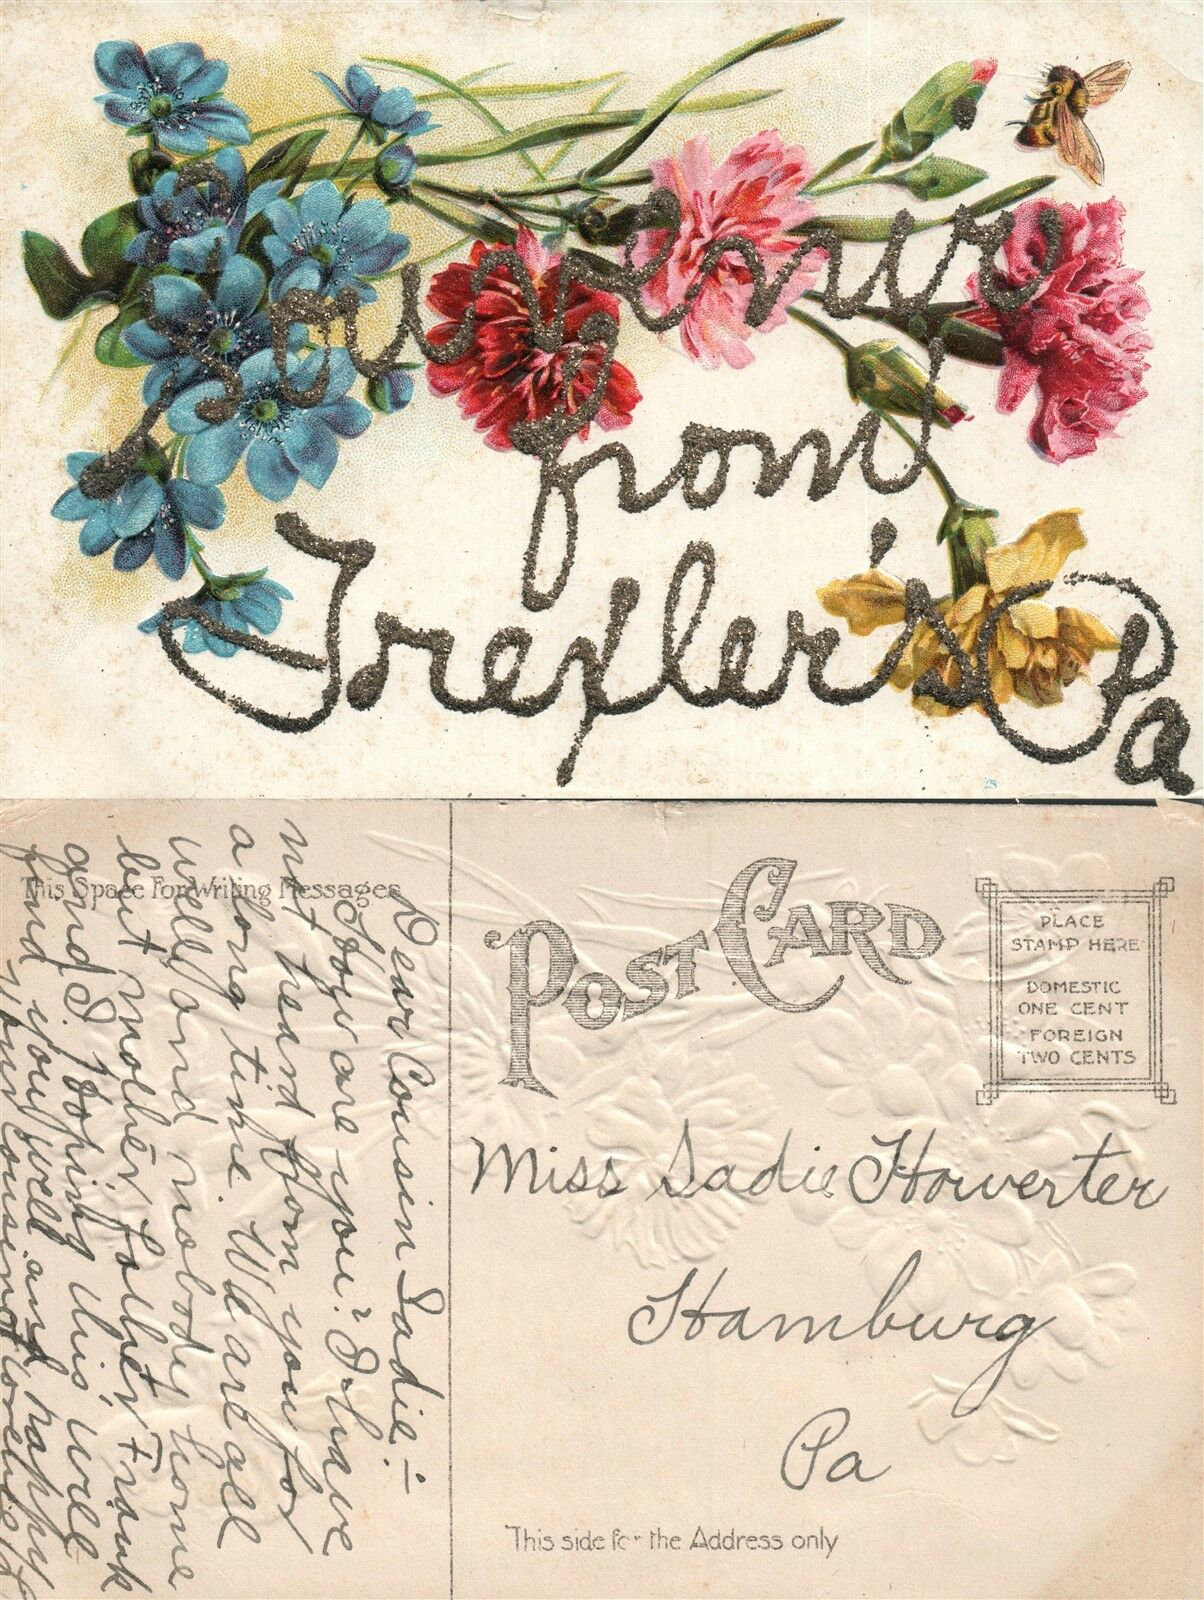 Souvenir
from
Trexler's Pa
This Space For Writing Messages
Dear Cousin Sadie:-
How are you? I have
not heard from you for
a long time. We are all
well and nobody home
but mother, father, Frank
and I. Hoping this will
find you well and happy
Your Cousin
POST CARD
PLACE
STAMP HERE
DOMESTIC
ONE CENT
FOREIGN
TWO CENTS
Miss Sadie Howerter
Hamburg
Pa
This side for the Address only